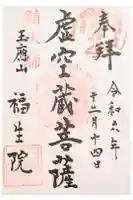 奉拝
令和六年
十二月十四日
虚空蔵菩薩
玉應山
福生院